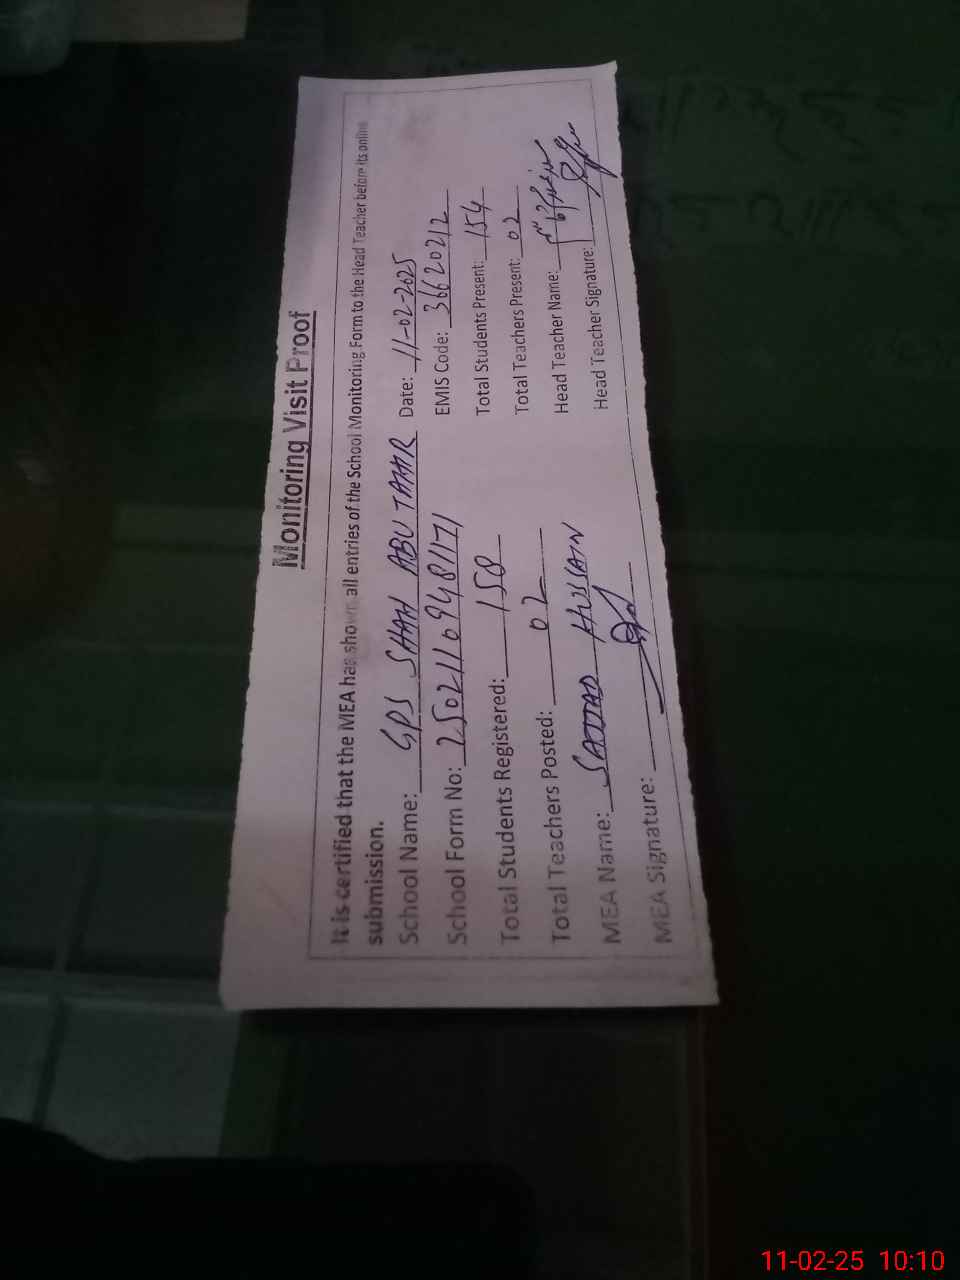 Monitoring Visit Proof
It is certified that the MEA has shown all entries of the School Monitoring Form to the Head Teacher before its online
submission.
School Name: GPS SHAH ABU TAHIR Date: 11-02-2025
School Form No: 25021109481171 EMIS Code: 36620212
Total Students Registered: 158 Total Students Present: 154
Total Teachers Posted: 02 Total Teachers Present: 02
MEA Name: SAJJAD HUSSAIN Head Teacher Name:
MEA Signature: Head Teacher Signature:
11-02-25 10:10